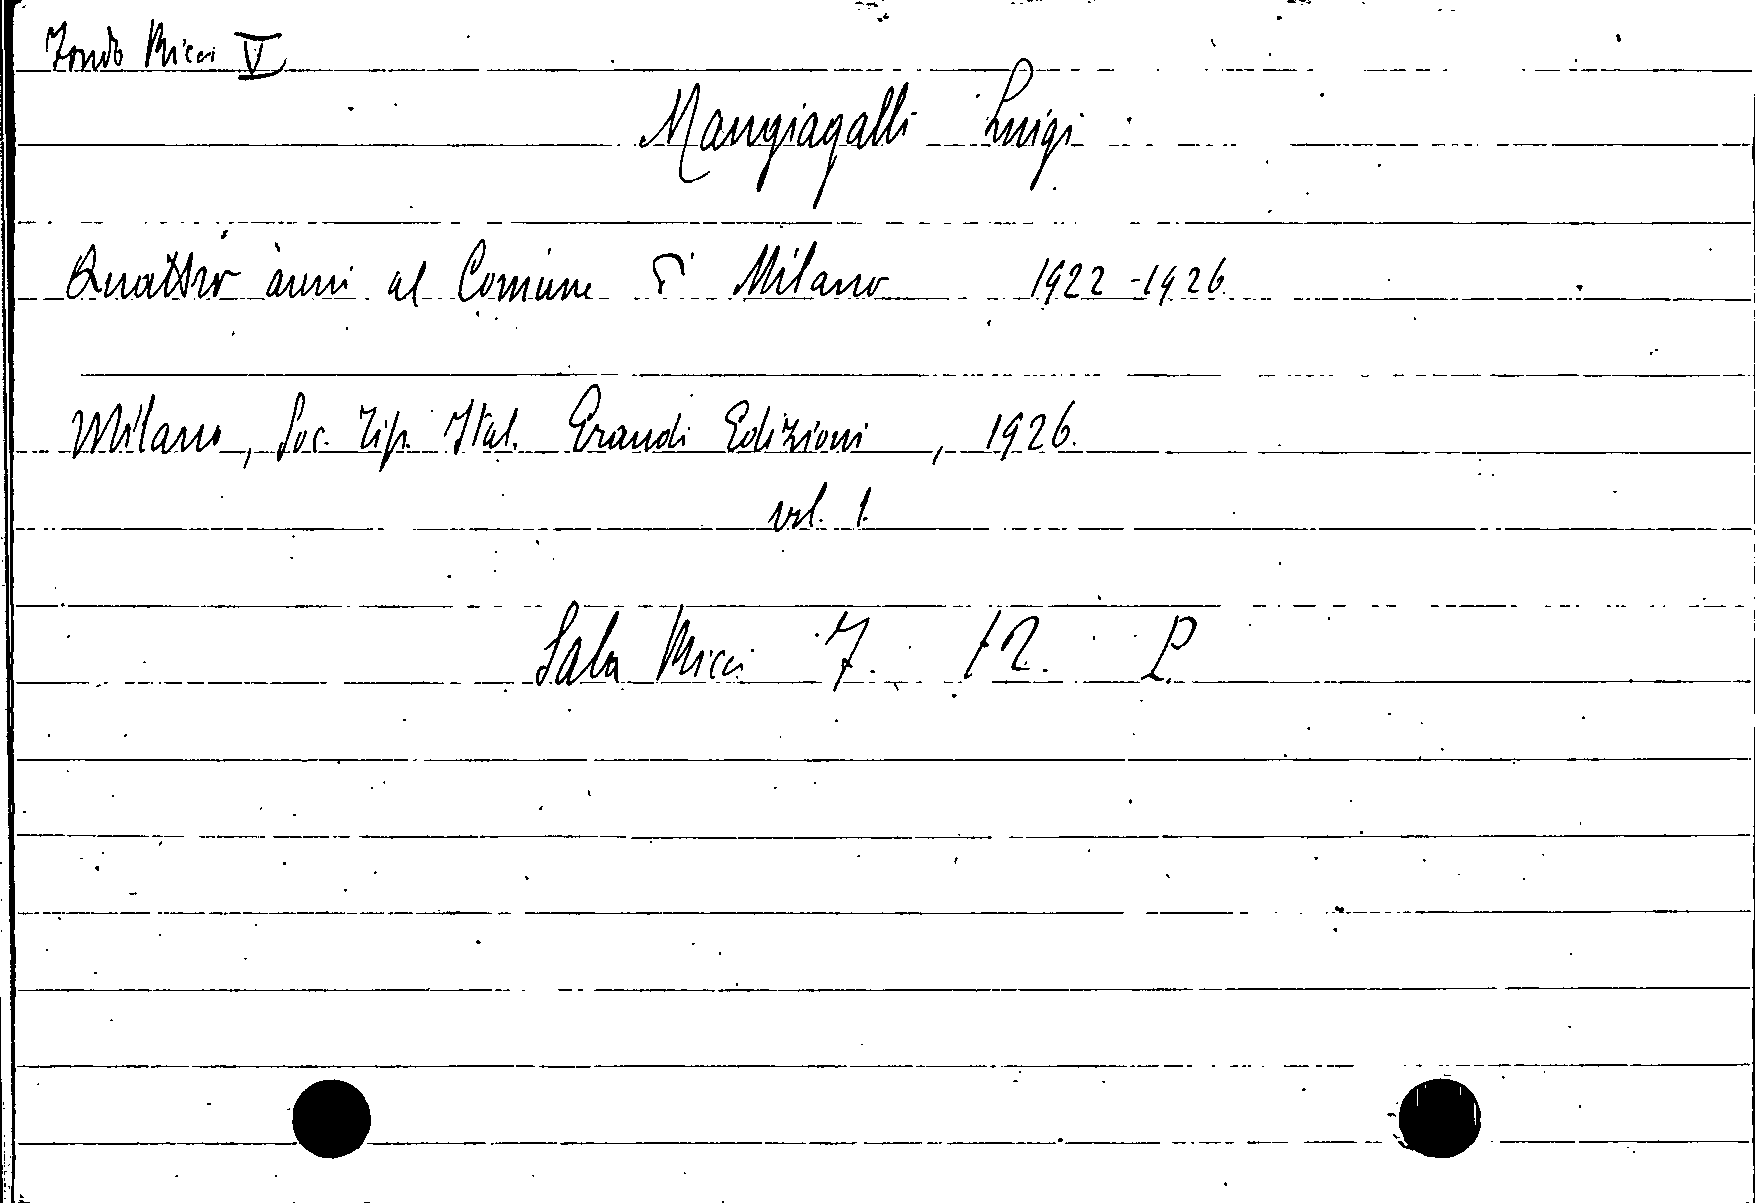 Fondo Ricci V
Mangiagalli Luigi
Quattro anni al Comune di Milano 1922-1926
Milano, Soc. Tip. Ital. Grandi Edizioni, 1926.
vol. 1.
Sala Ricci 7. 12. P.